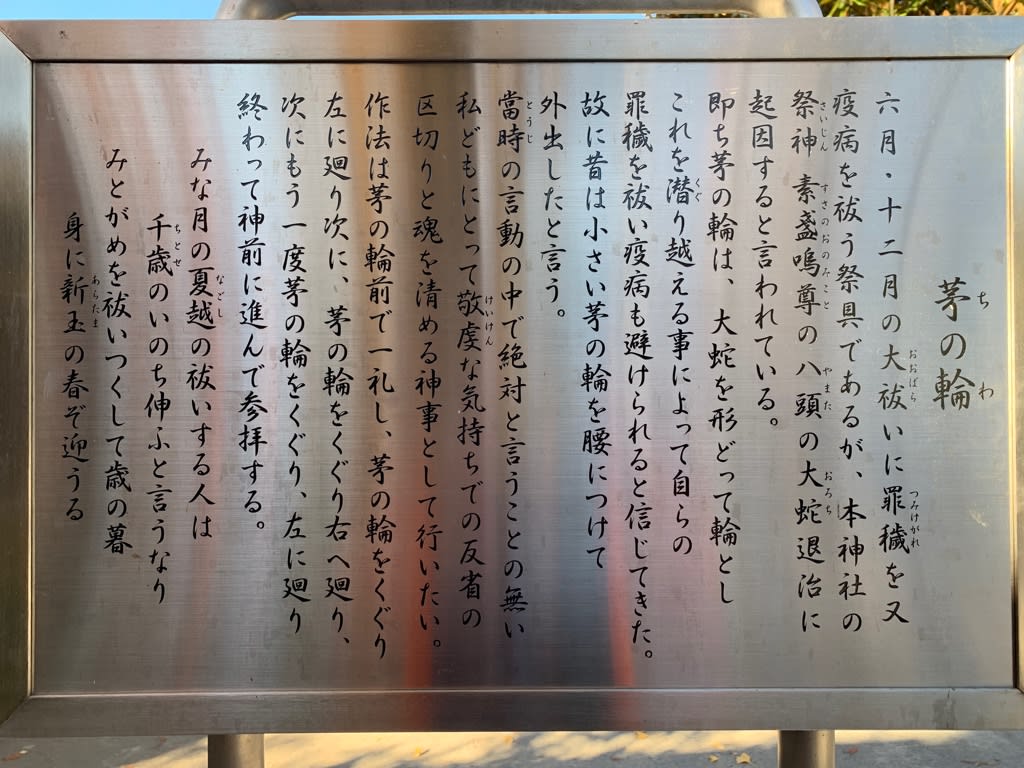 茅の輪
六月・十二月の大祓いに罪穢を又
疫病を祓う祭具であるが、本神社の
祭神 素盞嗚尊の八頭の大蛇退治に
起因すると言われている。
即ち茅の輪は、大蛇を形どって輪とし
これを潜り越える事によって自らの
罪穢を祓い疫病も避けられると信じてきた。
故に昔は小さい茅の輪を腰につけて
外出したと言う。
當時の言動の中で絶対と言うことの無い
私どもにとって敬虔な気持ちでの反省の
区切りと魂を清める神事として行いたい。
作法は茅の輪前で一礼し、茅の輪をくぐり
左に廻り次に、茅の輪をくぐり右へ廻り、
次にもう一度茅の輪をくぐり、左に廻り
終わって神前に進んで参拝する。
みな月の夏越の祓いする人は
千歳のいのち伸ふと言うなり
みとがめを祓いつくして歳の暮
身に新玉の春ぞ迎うる